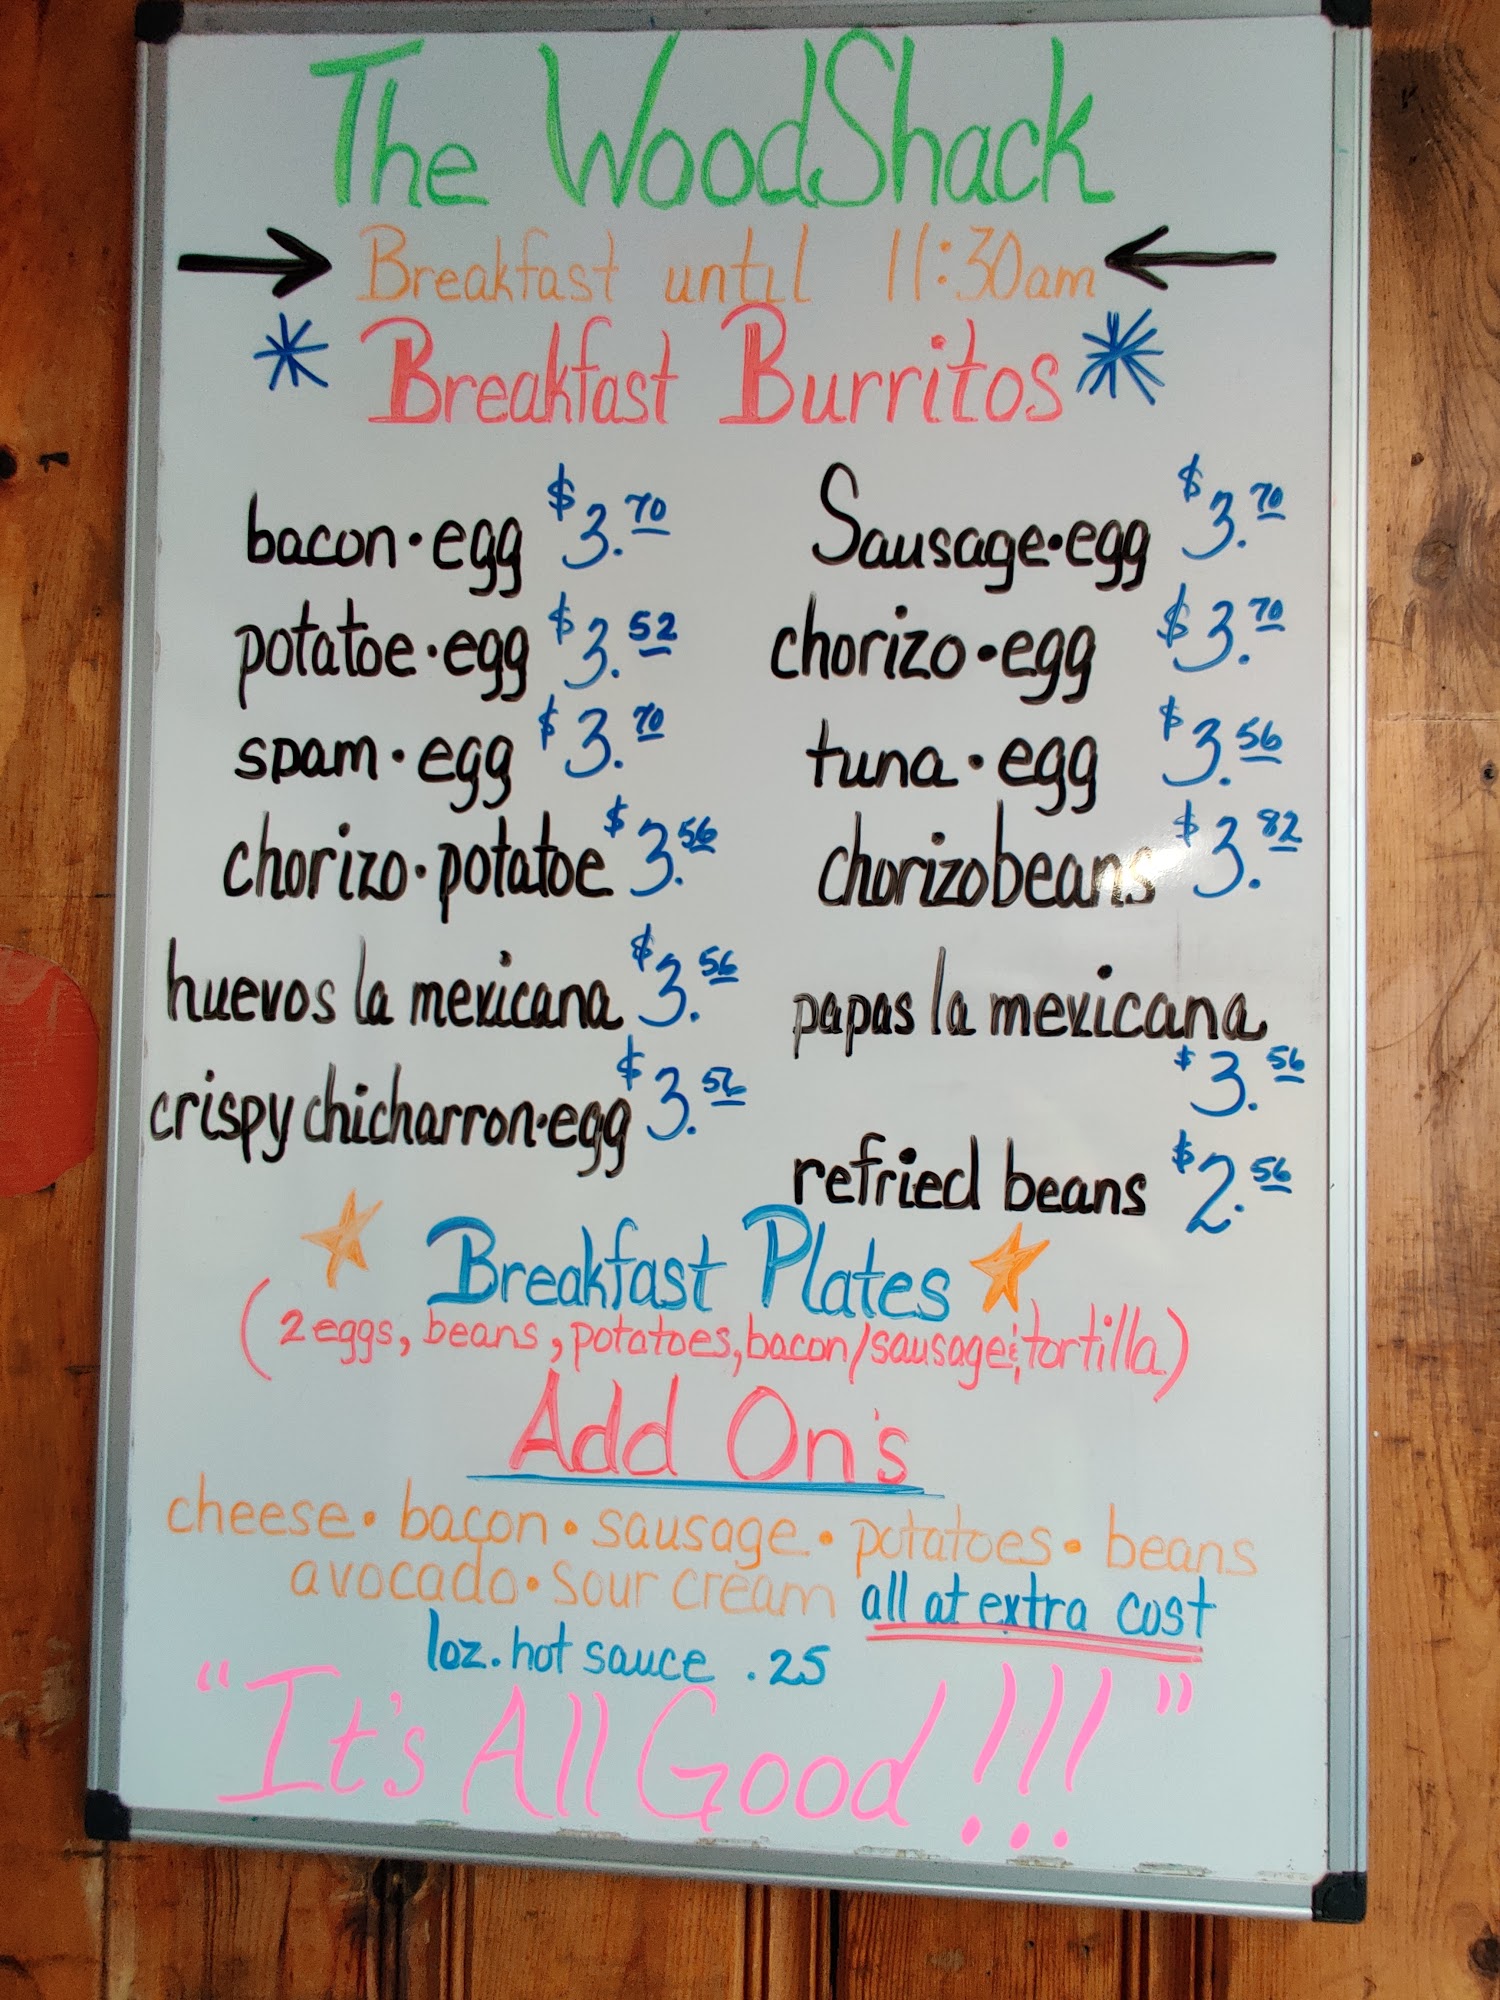 The WoodShack
Breakfast until 11:30am
Breakfast Burritos
bacon·egg $3.70
Sausage·egg $3.70
potatoe·egg $3.52
chorizo·egg $3.70
spam·egg $3.70
tuna·egg $3.56
chorizo·potatoe $3.56
chorizobeans $3.82
huevos la mexicana $3.56
papas la mexicana
$3.56
crispy chicharron·egg $3.56
refried beans $2.56
Breakfast Plates
(2 eggs, beans, potatoes, bacon/sausage & tortilla)
Add On's
cheese · bacon · sausage · potatoes · beans
avocado · sour cream all at extra cost
1oz. hot sauce .25
"It's All Good!!!"